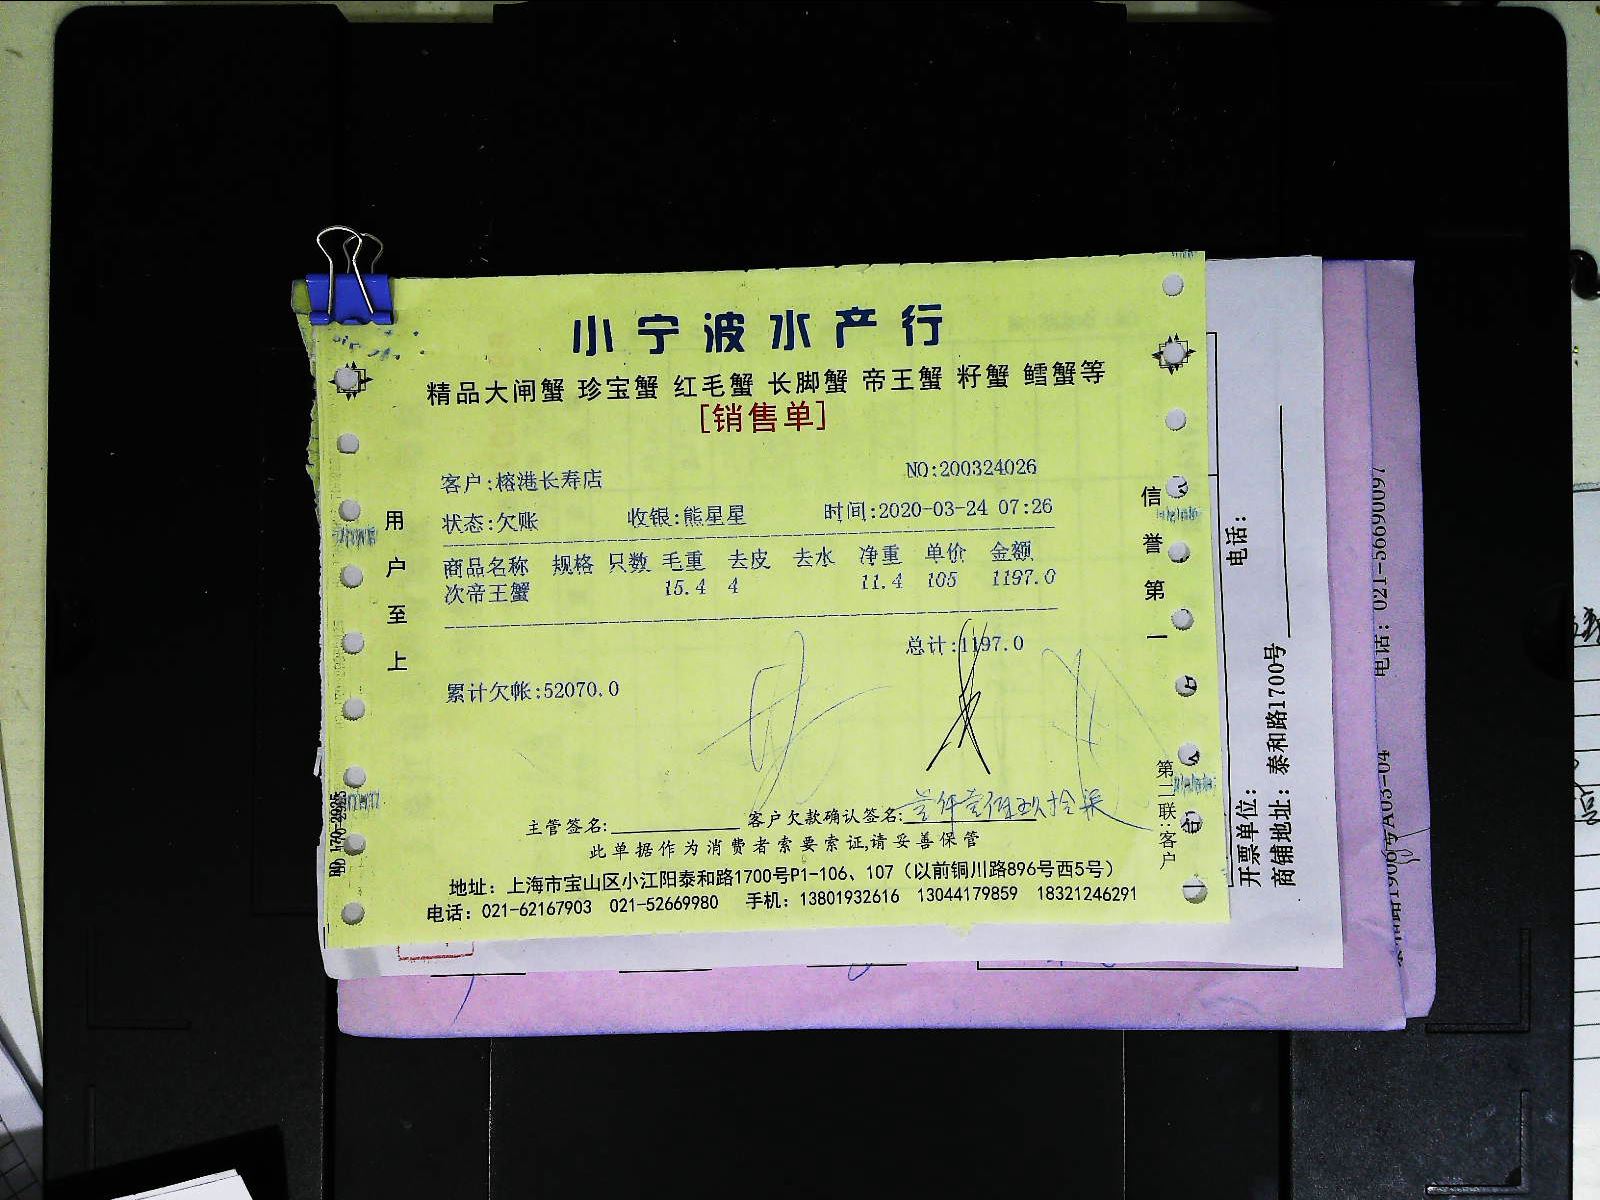 小宁波水产行
精品大闸蟹 珍宝蟹 红毛蟹 长脚蟹 帝王蟹 籽蟹 鳕蟹等
[销售单]
客户:榕港长寿店 NO:200324026
状态:欠账 收银:熊星星 时间:2020-03-24 07:26
商品名称 规格 只数 毛重 去皮 去水 净重 单价 金额
次帝王蟹 15.4 4 11.4 105 1197.0
总计:1197.0
累计欠帐:52070.0
主管签名: 客户欠款确认签名: 壹仟壹佰玖拾柒
此单据作为消费者索要索证,请妥善保管
地址：上海市宝山区小江阳泰和路1700号P1-106、107（以前铜川路896号西5号）
电话：021-62167903 021-52669980 手机：13801932616 13044179859 18321246291
用户至上
信誉第一
第二联:客户
电话：
开票单位：
商铺地址：泰和路1700号
电话：021-56690097